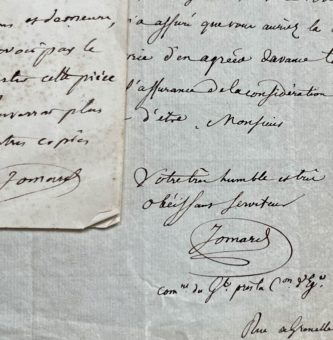 s et demeure,
pas le
cette pièce
plus
copies
Jomard
a assuré que vous auriez la
d'en agréer d'avance
l'assurance de la considération
d'être, Monsieur
Votre très humble et très
obéissant serviteur
Jomard
du Gt. près la
Rue de Grenelle